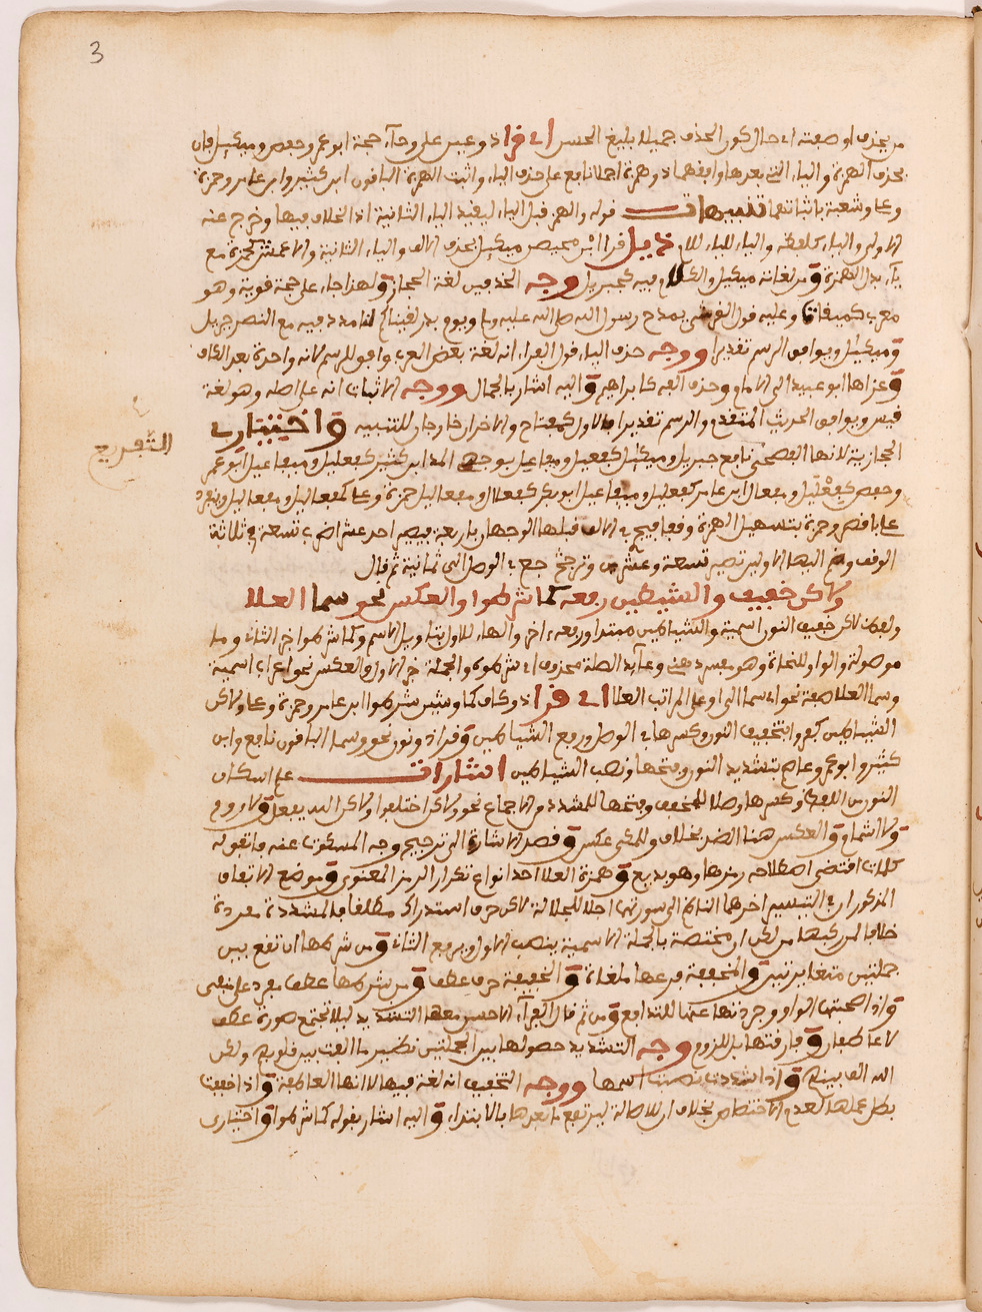 3
من يحذف او صفته اى حال كون الحذف جميلا بليغ الحسن اى قرا ذو عين على وحآ، حجة ابو عمرو وحفص وميكيل فان
بحذف الهمزة والياء التي بعدها وافقهما ذو همزة اجملا نافع على حذف الياء واثبت الهمزة الباقون ابن كثير وابن عامر وحمزة
وعلى وشعبة باثباتهما تنبيهات قوله والهمز قبل الياء ليفيد الياء الثانية اذ الخلاف فيها وخرج عنه
الاولى والياء كلفظه والياء للياء للام تذييل قرا ابن محيصن ميكيل بحذف الالف والياء الثانية والاعمش كحمزة مع
ياء بدل الهمزة ومن لغاته ميكيل والكلام فيه كجبريل وجه الحذفين لغة الحجاز ولهذا جاء على جهة قوية وهو
معرب كميقات وعليه قول القرشى يمدح رسول الله صلى الله عليه وسلم ويوم بدر لقيناكم لنا مدد فيه مع النصر جبريل
وميكيل ويوافق الرسم تقديرا ووجه حذف الياء قول الفراء انه لغة بعض العرب وافق للرسم لانه واحدة بعد الكاف
وعزاها ابو عبيد الى الامام وحذف الفه كابراهيم واليه اشار بالجمال ووجه الاثبات انه على اصله وهو لغة
قيس ويوافق الحديث المتقدم والرسم تقديرا والاول كمفتاح والاخران خارجان للتنبيه واختيارى
التفريع
الحجازية لانها الفصحى نافع جبريل وميكيل كفعيل ومفاعيل بوجهى المد ابن كثير كفعليل ومفاعيل ابو عمر
وحفص كفعليل ومفعال ابن عامر كفعليل ومفاعيل ابو بكر كفعلل ومفعاليل حمزة وعلى كفعاليل ومفعاليل وينفرد
الوقف وضم اليها الاولين تصير تسعة وعشرين وترجح جمع في الوصل الى ثمانية ثم قال
ولاكن خفيف والشيطين رفعه كما شرطوا والعكس نحو سما العلا
ولفظ لاكن خفيف النون اسمية والشياطين مبتدا ورفعه اخر والهاء للاول بتاويل الاسم وكما شرطوا خبر الثانى وما
موصولة والواو للنحاة وهو مفسر ذهني وعايد الصلة محذوف اى شرطوه والجملة خبر الاول والعكس نحو اعراب اسمية
وسما العلا صفة نحو اى سما الى اعلى المراتب العلا اى قرا ذو كاف كما وشين شرطوا ابن عامر وحمزة وعلى ولاكن
الشياطين كفروا بتخفيف النون وكسرها في الوصل ورفع الشياطين وقرا ذو نون نحو وسما الباقون نافع وابن
كثير وابو عمرو وعاصم بتشديد النون وفتحها ونصب الشياطين اشارات على اسكان
النون من اللفظ وكسرها وصلا للمخفف وفتحها للمشدد من الاجماع نحو ولاكن اختلفوا ولاكن الله يفعل ولا روم
ولا اشمام والعكس هنا الضد بخلاف وللمكى عكس وقصد الاشارة الى ترجيح وجه المسكوت عنه ما تقوله
كلمات اقتضى اصطلاحه رمزها وهو بديع وهمزة العلا احد انواع تكرار الرمز المعنوى وموضع الانفال
المذكوران في التيسير اخرهما الناظم الى سورتهما اجلا للجلالة لاكن حرف استدراك مطلقا فالمشددة مفردة
خلافا لمن ركبها من لكن ان مختصة بالجملة الاسمية ينصب الاول ويرفع الثانى ومن شرطها ان تقع بين
جملتين متغايرتين والمخففة فرعها ملغاة والخفيفة حرف عطف ومن شرطها عطف مفرد على منفى
واذا صحبتها الواو وجردتها عنها للتدافع ومن ثم قال الفراء الاحسن معها التشديد ليلا تجتمع صورة عطف
لا عاطفان وفارقتها بل للزوم وجه التشديد حصولها بين الجملتين نظير ما الفت بين قلوبهم ولكن
الله الف بينهم واذا شددت نصبت اسمها ووجه التخفيف انه لغة فيها لا انها العاطفة واذا خففت
بطل عملها لعدم الاختصاص بخلاف ان للاصالة ليرتفع ما بعدها بالابتداء واليه اشار بقوله كما شرطوا واختيارى